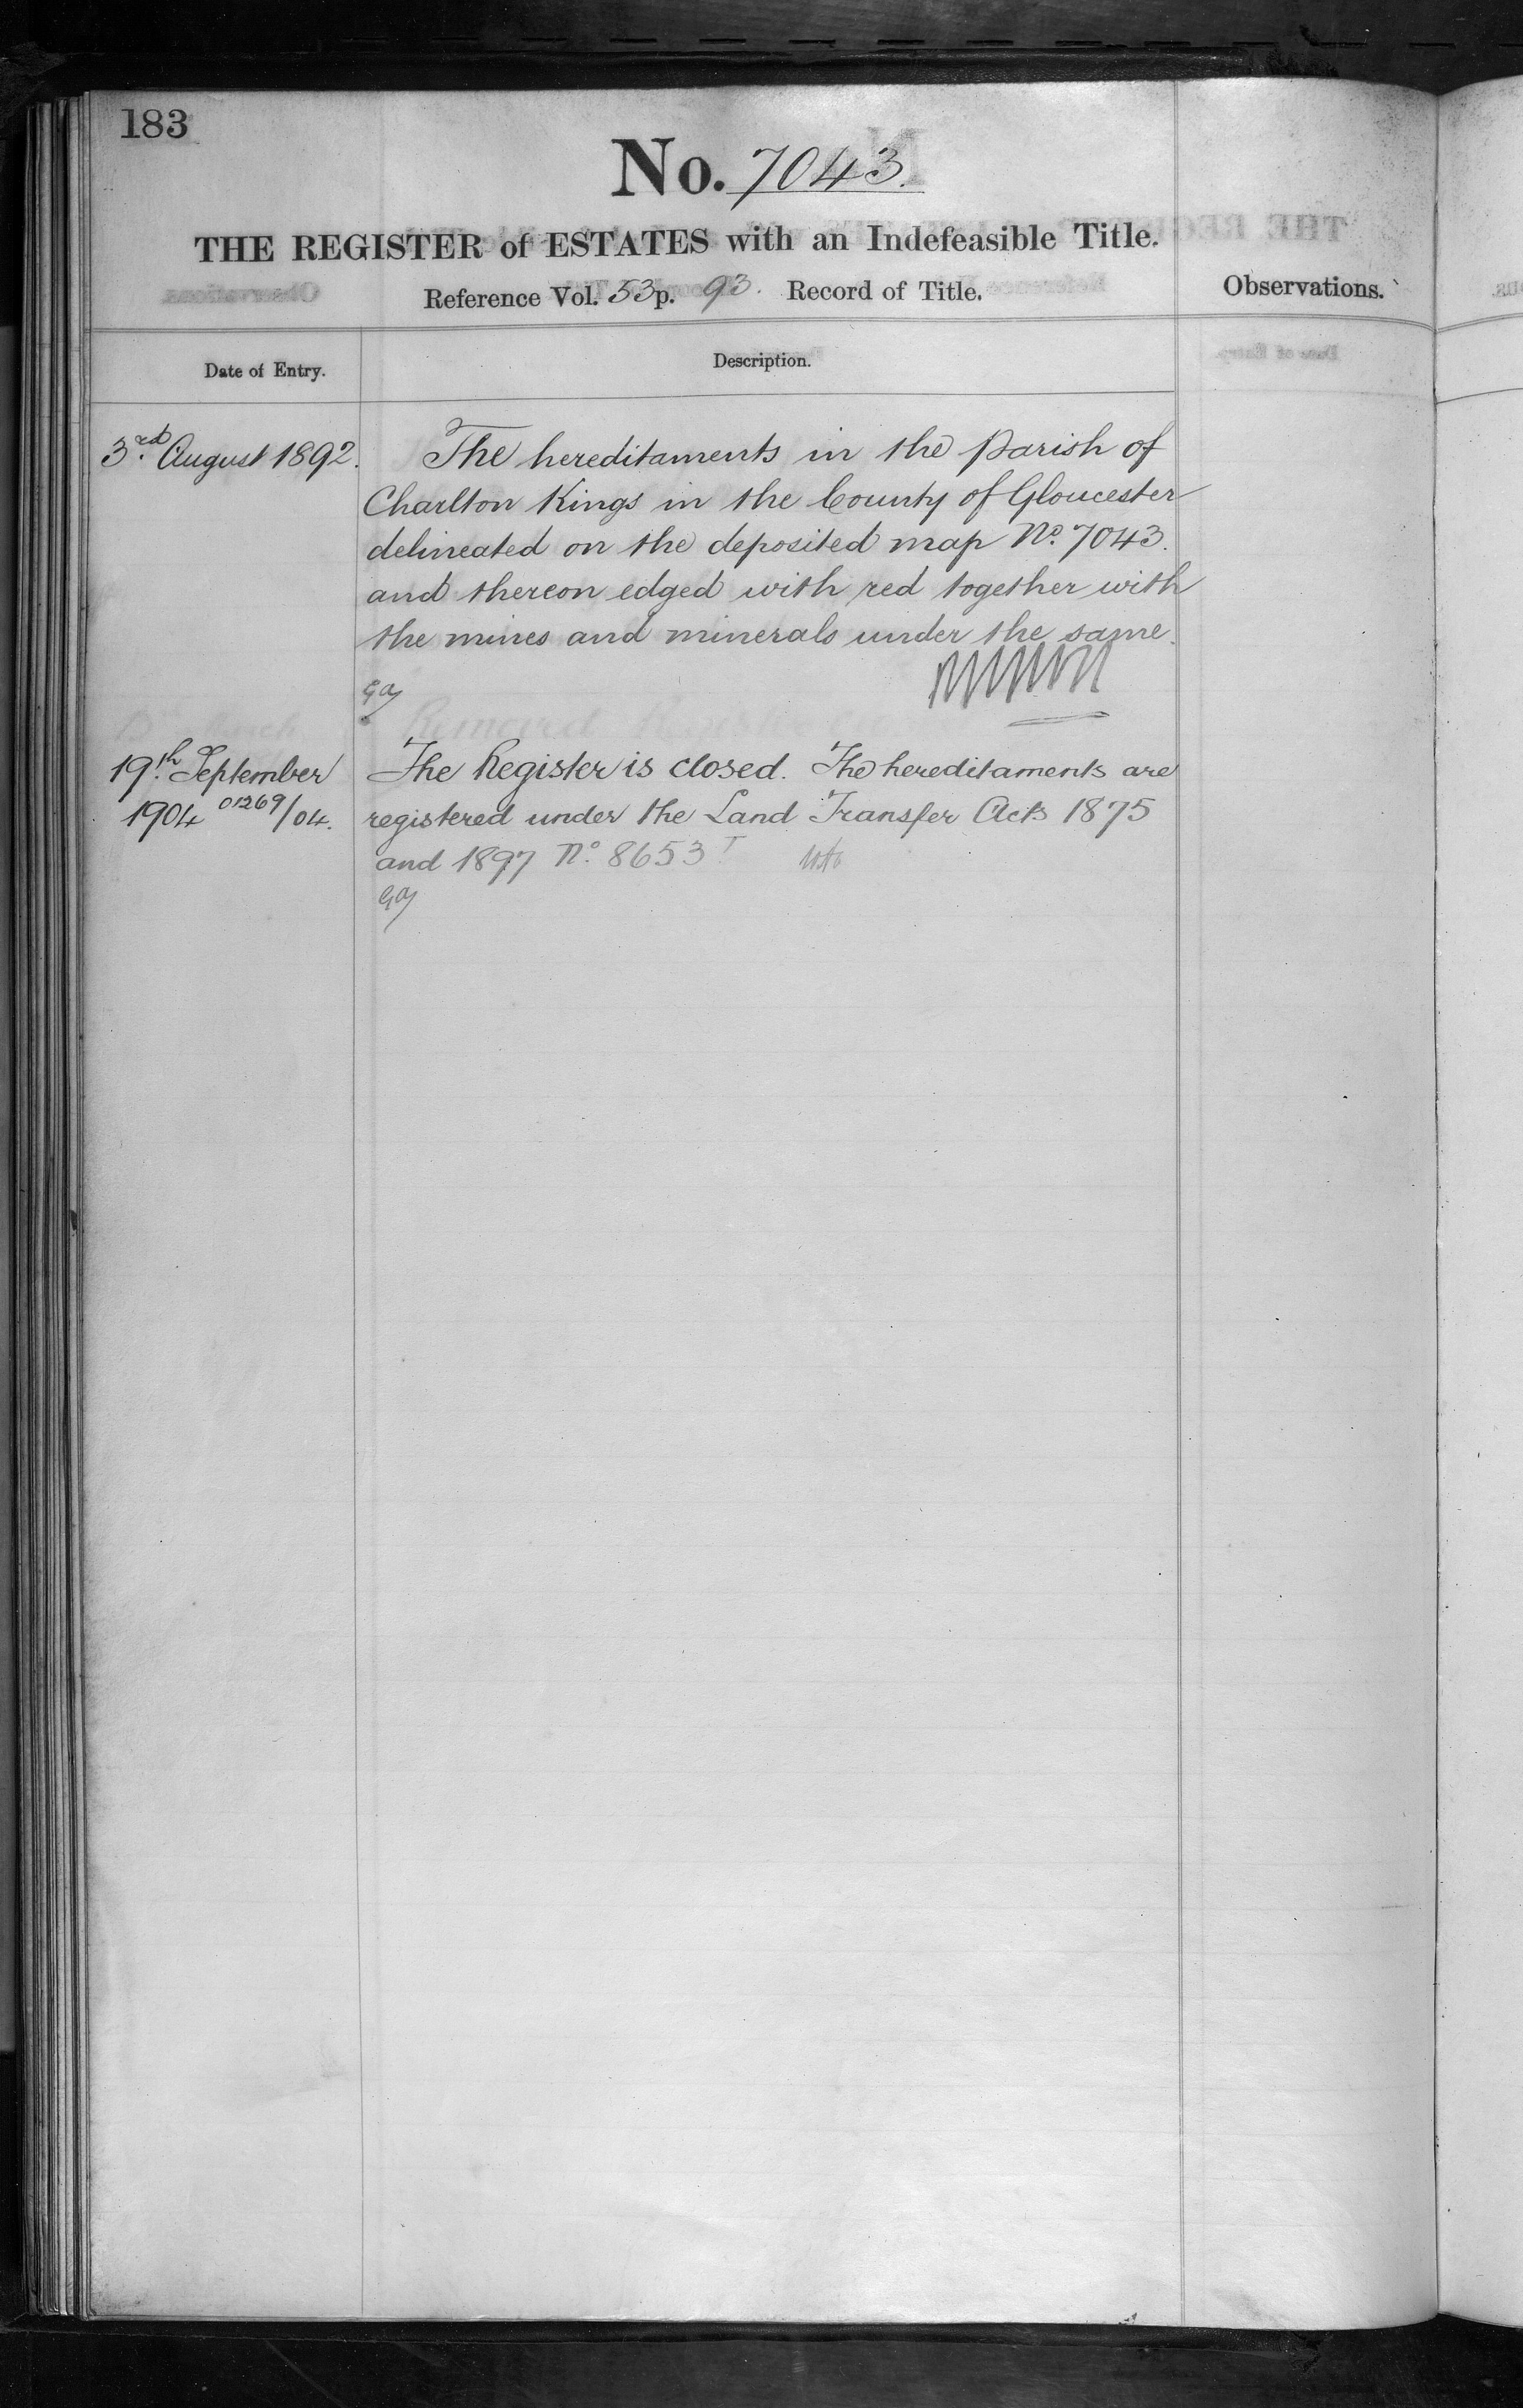 183
No. 7043.
THE REGISTER of ESTATES with an Indefeasible Title.
Reference Vol. 53 p. 93. Record of Title.
Observations.
Date of Entry.
Description.
3rd August 1892.
The hereditaments in the Parish of
Charlton Kings in the County of Gloucester
delineated on the deposited map No. 7043.
and thereon edged with red together with
the mines and minerals under the same.
19th September
1904 01269/04.
The Register is closed. The hereditaments are
registered under the Land Transfer Acts 1875
and 1897 No. 8653